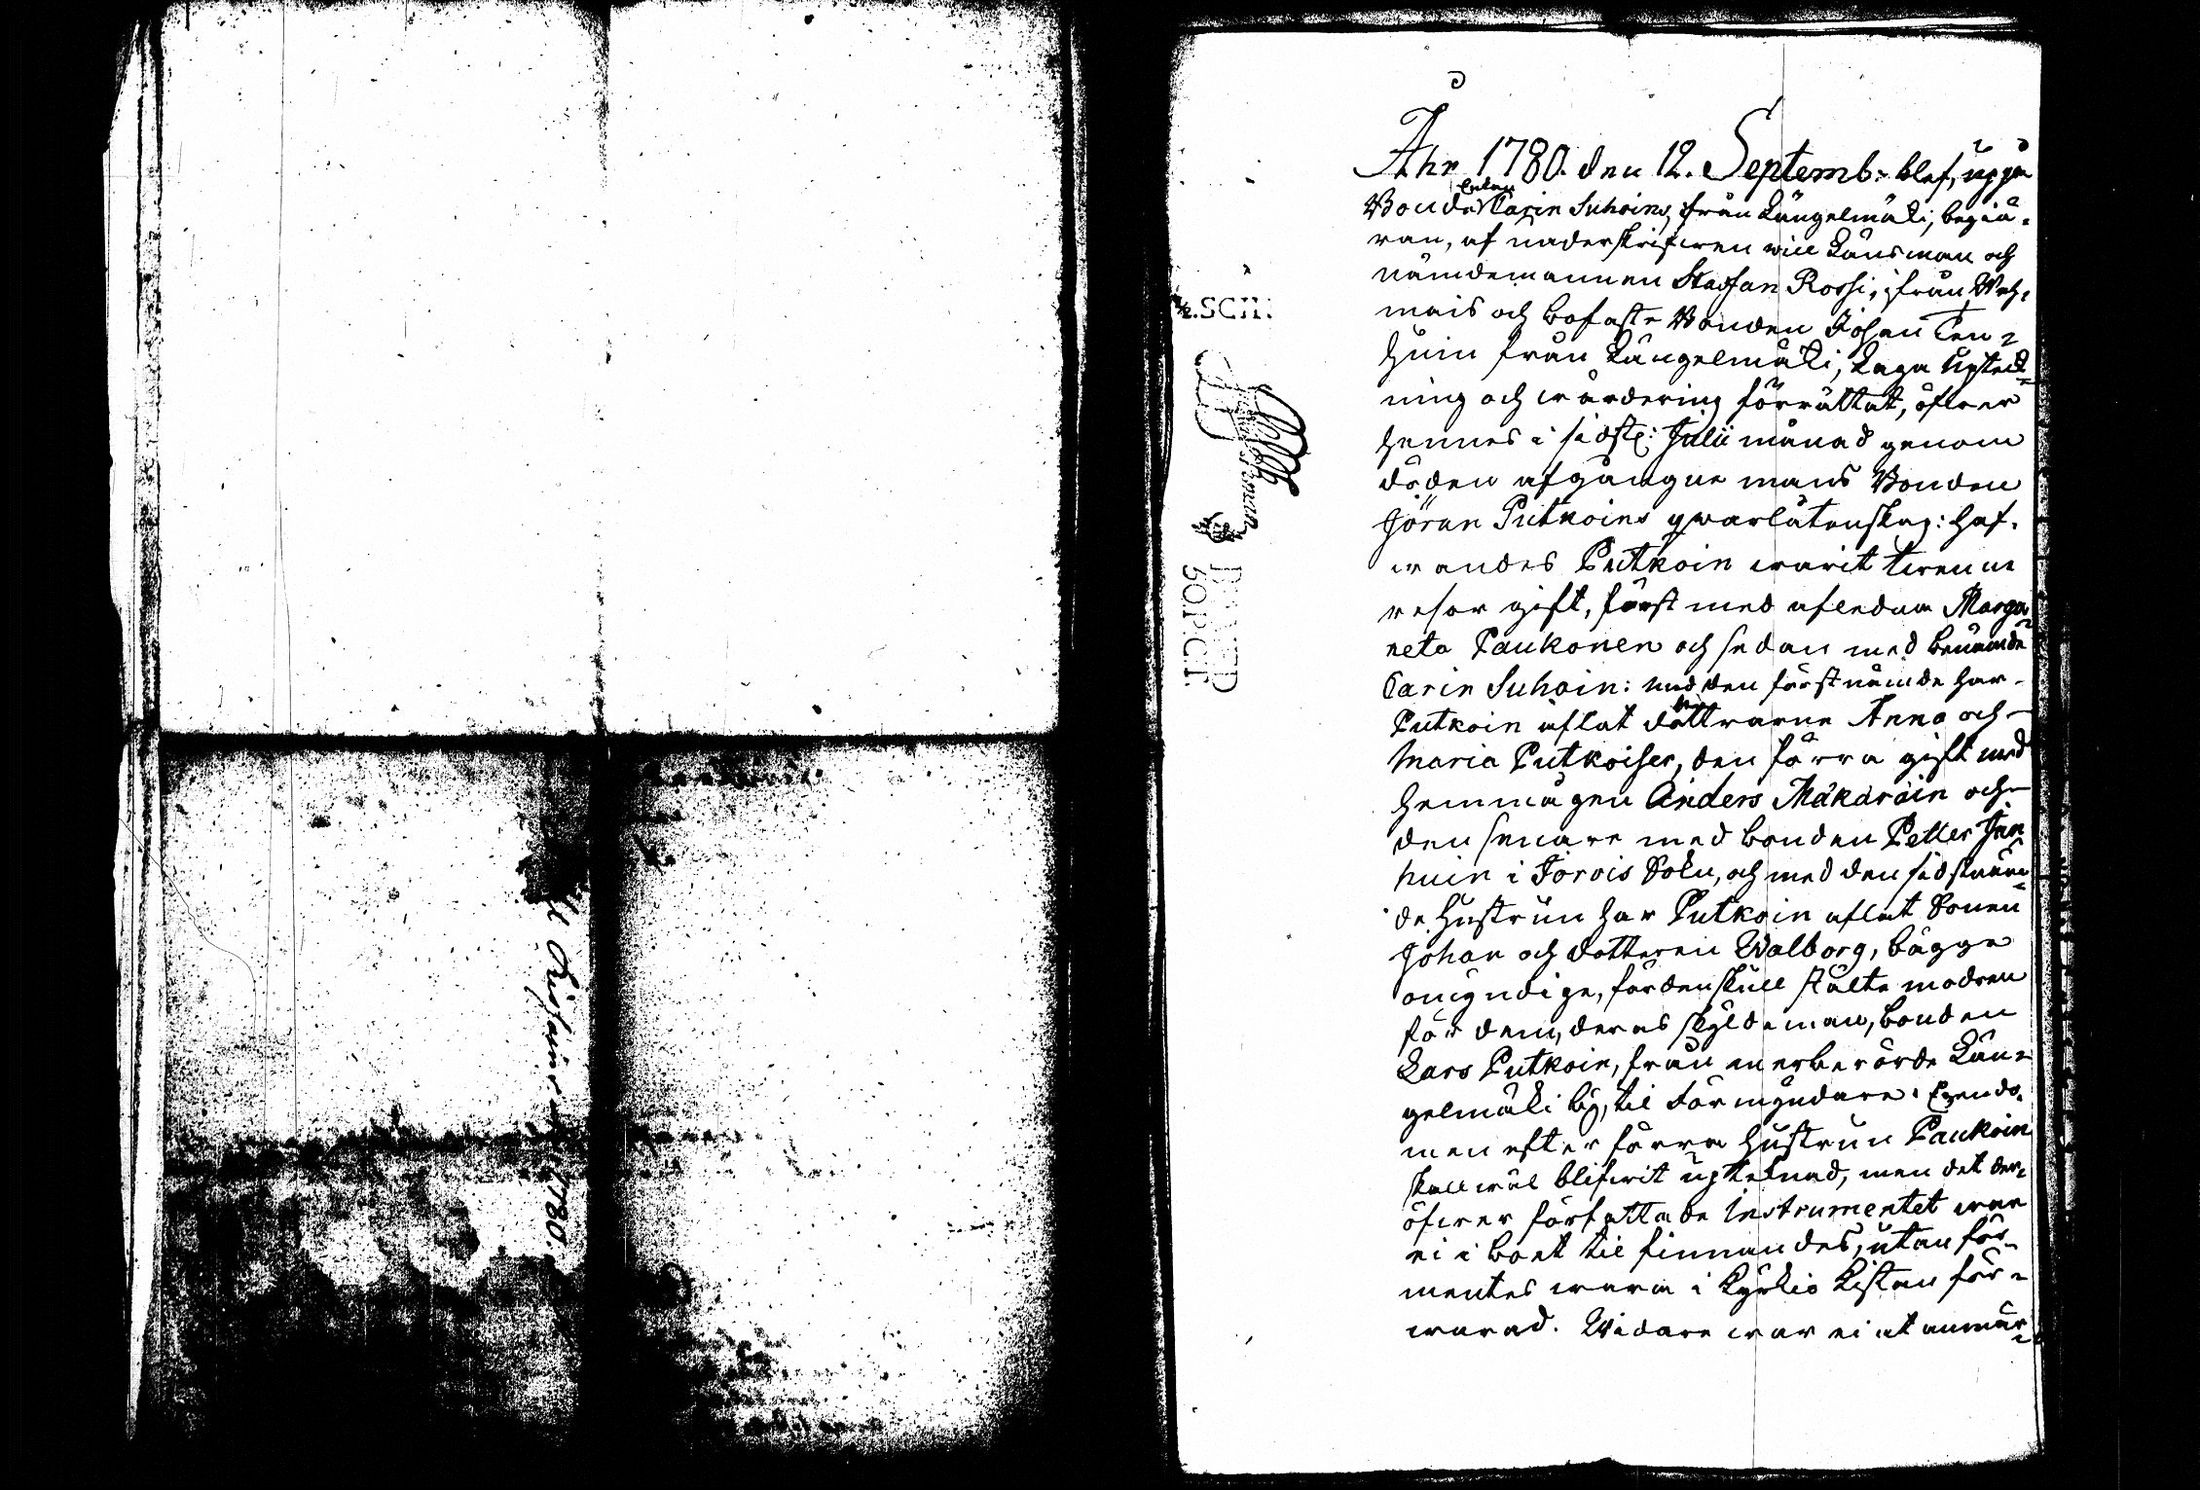 Åhr 1780. den 12. Septemb: blef, uppå
Bonde Enkan Carin Suhoins, från Längelmäki, begiä-
ran, af underskrifwen vice Länsman och
nämdemannen Staffan Rossi, från Weh-
mais och bofaste Bonden Johan Ten-
huin från Längelmäki, Laga Uptek-
ning och wärdering förrättat, öfwer
hennes i sidstl: Julii månad genom
döden afgångne mans Bonden
Jöran Putkoins qwarlåtenskap: haf-
wandes Putkoin warit twenne
resor gift, först med afledna Marga-
reta Paukonen och sedan med benämde
Carin Suhoin: med den förstnämde har
Putkoin aflat döttrarne Anna och
Maria Putkoiser, den förra gift med
hemmågen Anders Makaräin och
den senare med bonden Petter Jan
huin i Jorois Sokn, och med den sidstnäm-
de Hustrun har Putkoin aflat Sonen
Johan och dotteren Walborg, bägge
omyndige, fördenskull stälte modren
för dem, deras skyldeman, bonden
Lars Putkoin, från merberörde Län-
gelmäki by, til Förmyndare. Egendo-
men efter förra hustrun Paukoin
skall wäl blifwit upteknad, men det der-
öfwer författade Instrumentet war
ei i boet til finnandes, utan för-
mentes wara i Kyrkio Kistan för-
warad. Widare war ei at anmär-
½.SCH:
50.P.C.T.
1780.